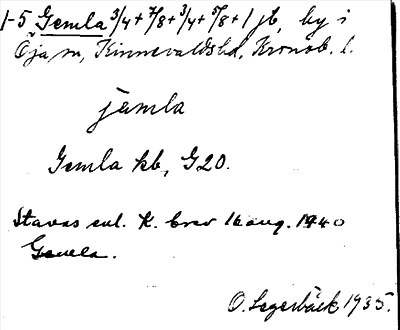 1-5 Gemla 3/4 + 7/8 + 3/4 + 5/8 + 1 jb, by i
Öja sn, Kinnevalds hd, Kronob. l.
jämla
Gemla kb, G20.
Stavas enl. K. brev 16 aug. 1940
Gemla.
O. Segerbäck 1935.